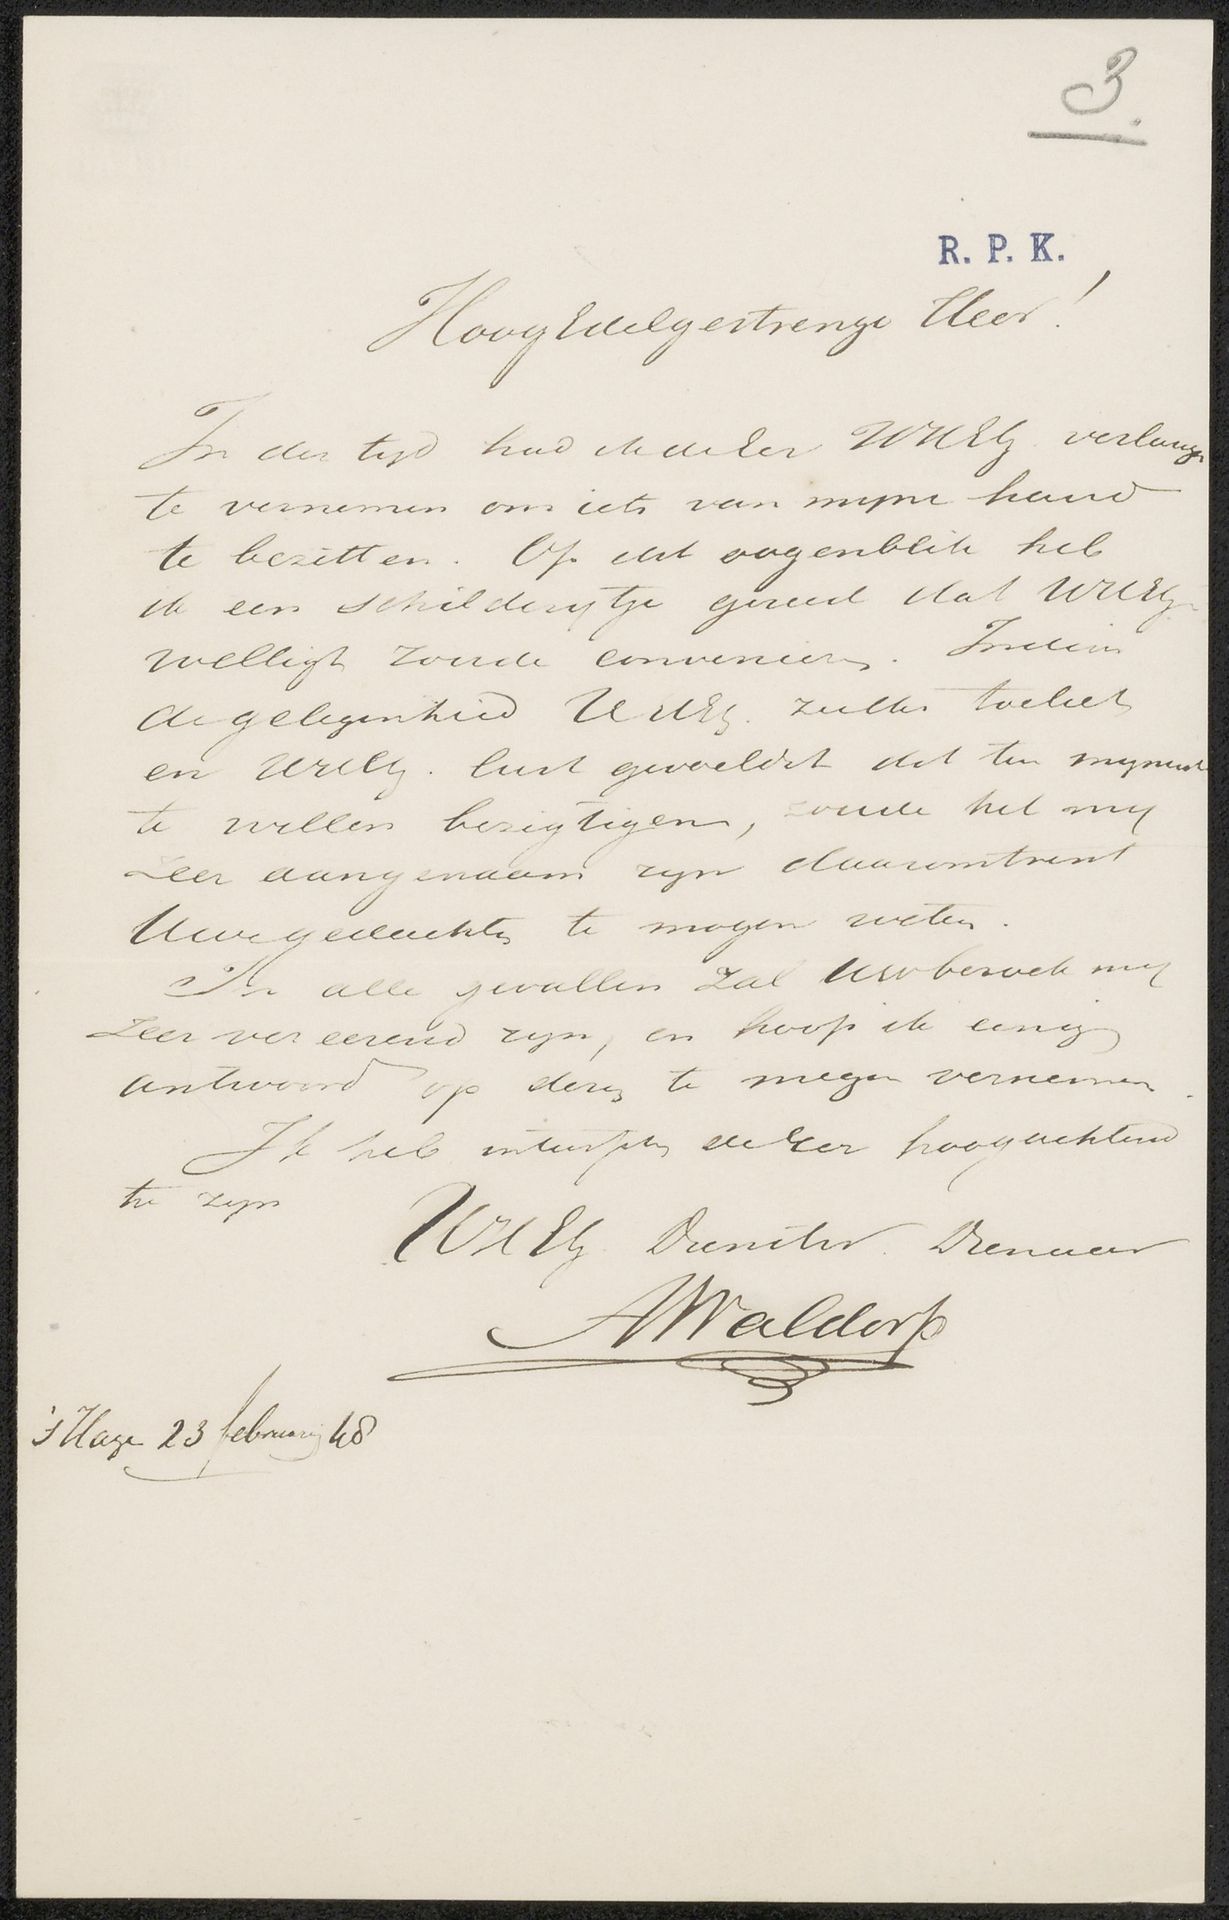 3.
R. P. K.
HoogEdelgestrenge Heer!
In der tyd had ik de Eer UHEG verlangen
te vernemen om iets van myne hand
te bezitten. Op dit oogenblik heb
ik een schilderytje gereed dat UHEG
welligt zoude convenieren. Indien
de gelegenheid UHEG. zulks toeliet
en UHEG. lust gevoeldet dit ten mynent
te willen bezigtigen, zoude het my
zeer aangenaam zyn daaromtrent
Uwe gedachten te mogen weten.
In alle gevallen zal Uw bezoek my
zeer vereerend zyn, en hoop ik eenig
antwoord op dezen te mogen vernemen.
Ik heb intusschen de Eer hoogachtend
te zyn
UHEG Dienstw. Dienaar
AWaldorp
's Hage 23 february 48